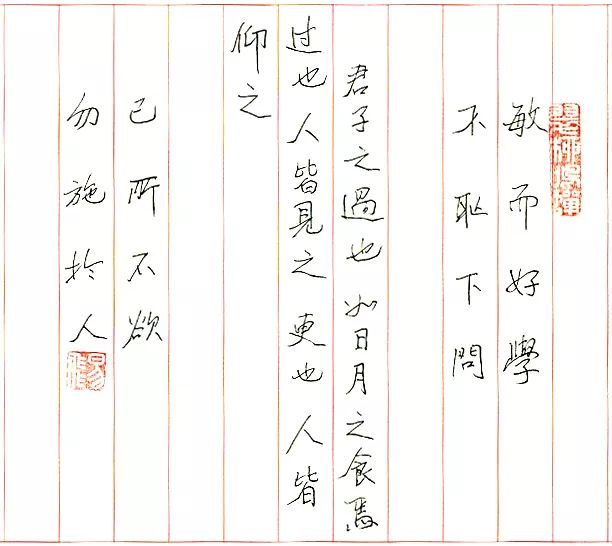 敏而好學
不恥下問
君子之過也如日月之食焉
过也人皆見之更也人皆
仰之
己所不欲
勿施於人